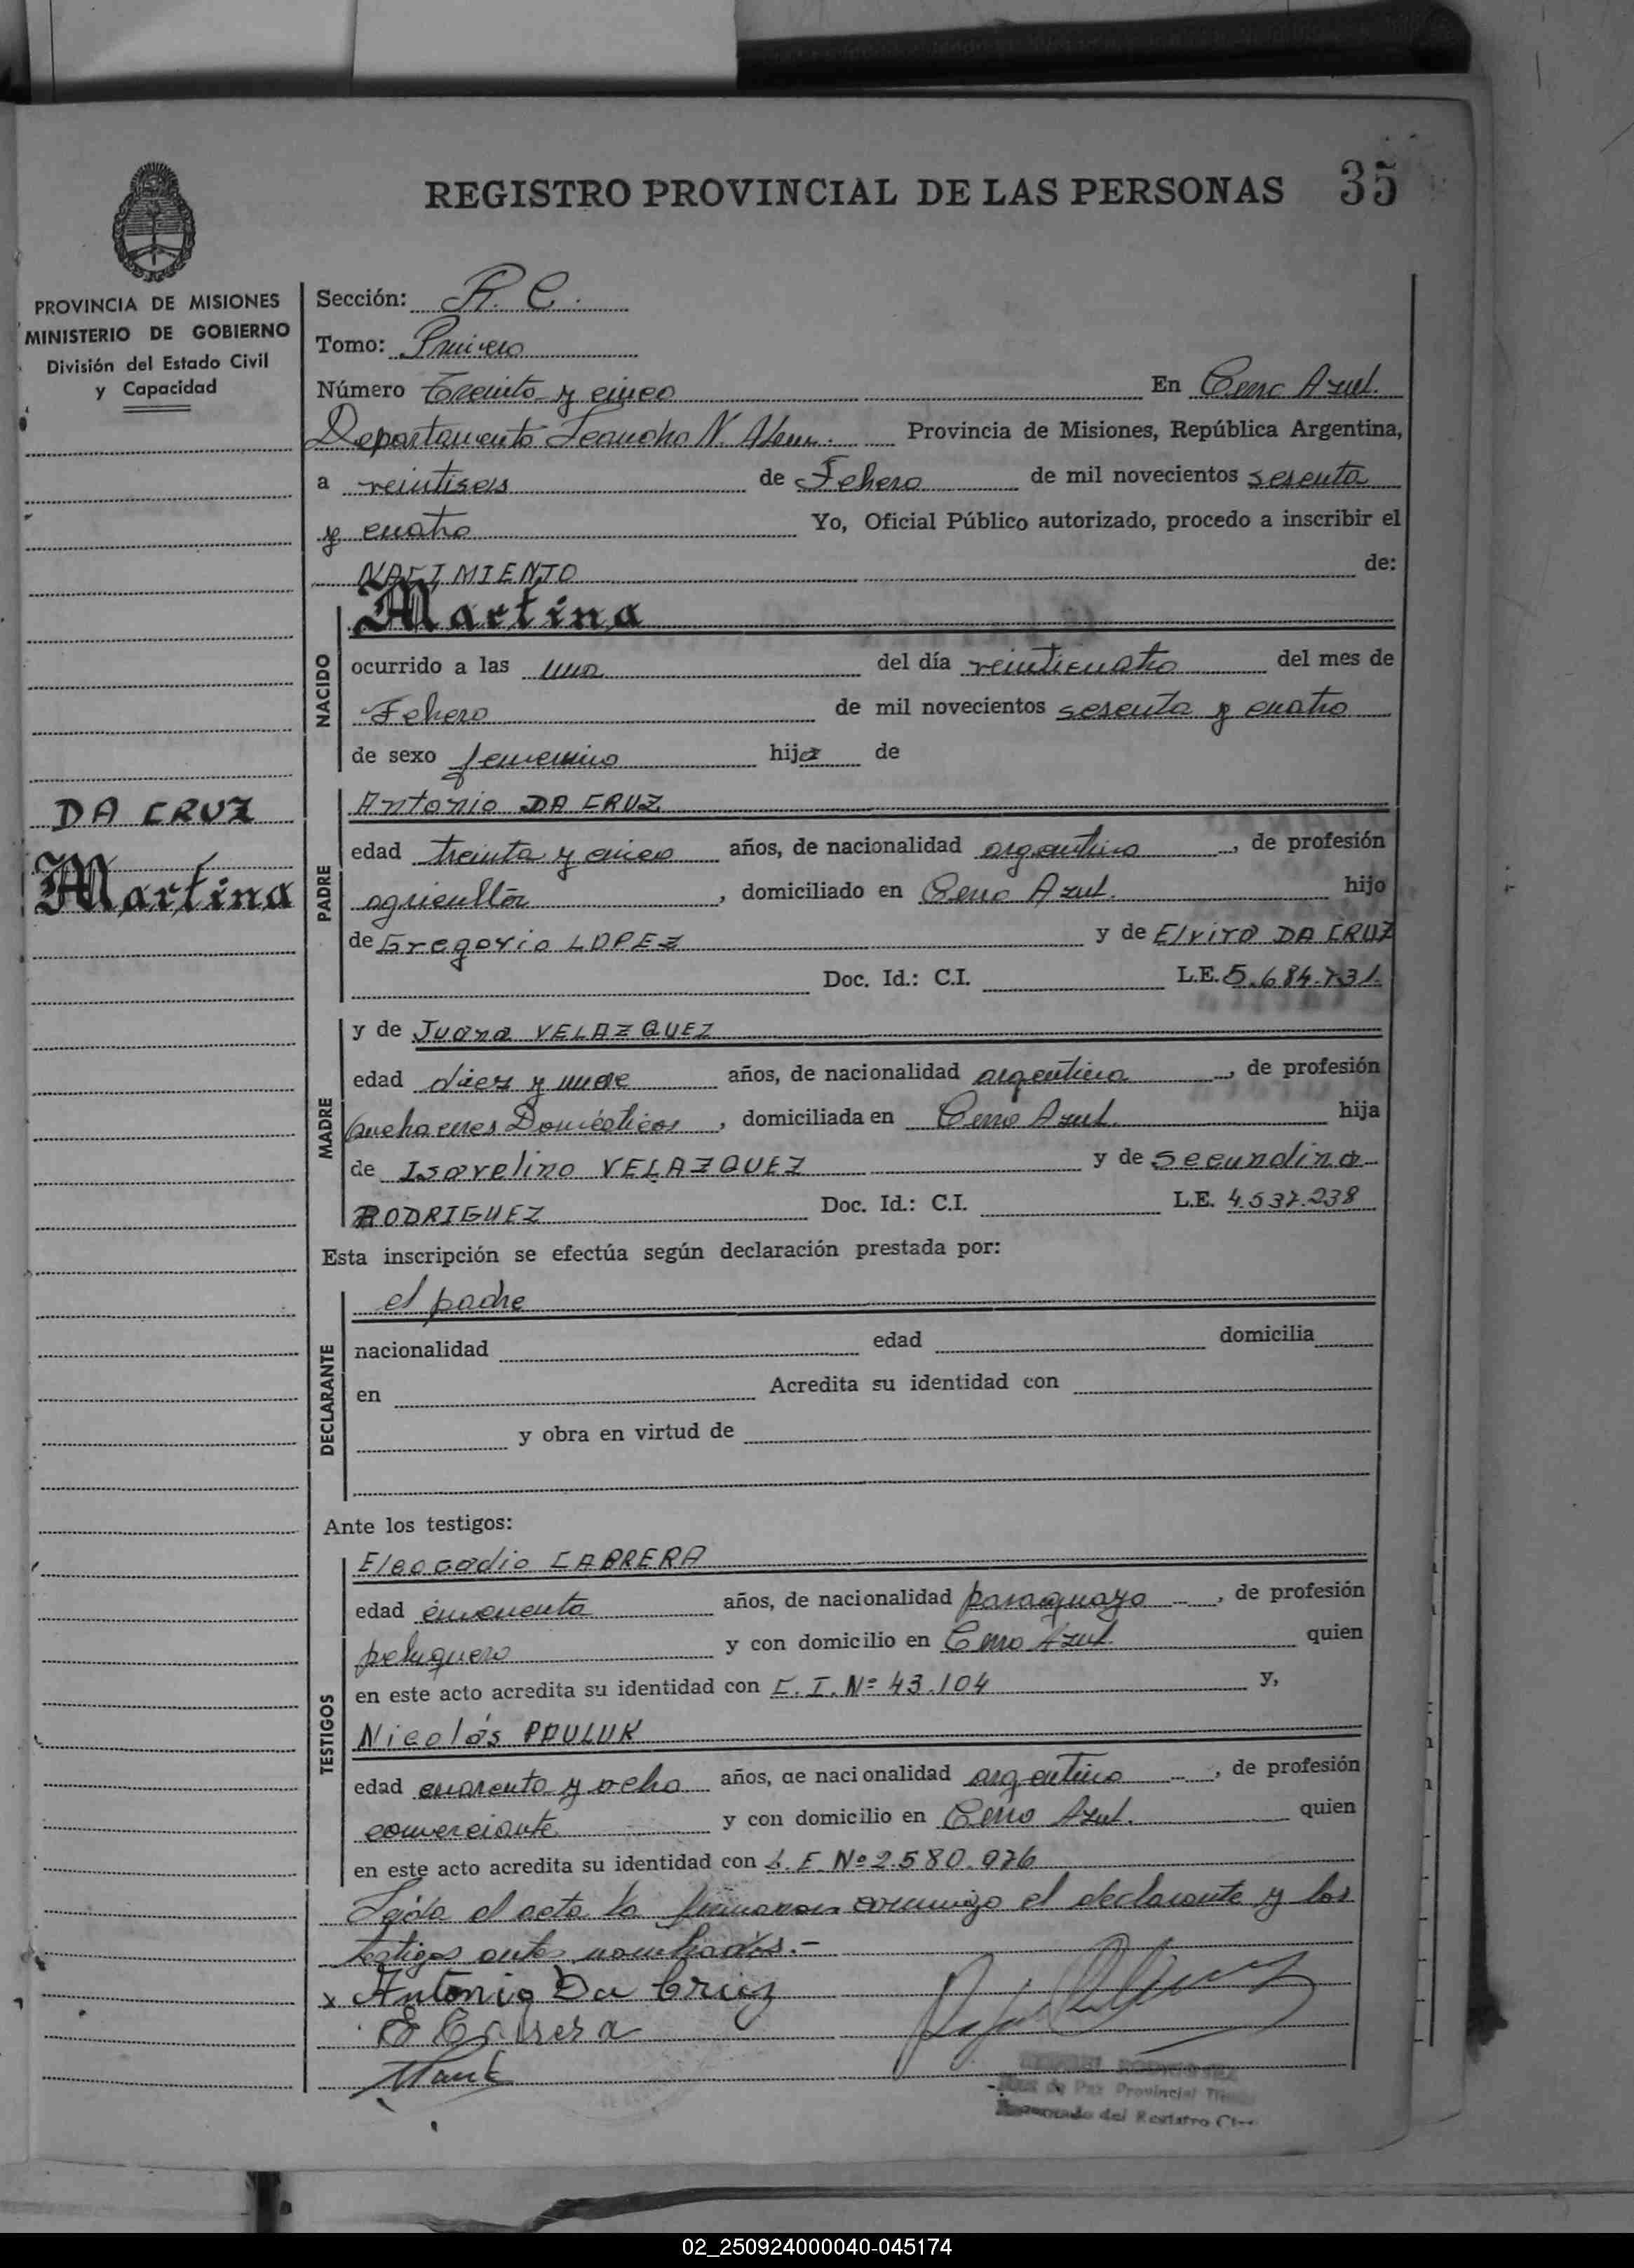 REGISTRO PROVINCIAL DE LAS PERSONAS 35
PROVINCIA DE MISIONES
MINISTERIO DE GOBIERNO
División del Estado Civil
y Capacidad
DA CRUZ
Martina
Sección: R. C.
Tomo: Primero
Número Treinta y cinco En Cerro Azul.
Departamento Leandro N. Alem. Provincia de Misiones, República Argentina,
a veintiseis de Febrero de mil novecientos sesenta
y cuatro Yo, Oficial Público autorizado, procedo a inscribir el
NACIMIENTO de:
NACIDO
Martina
ocurrido a las una del día veinticuatro del mes de
Febrero de mil novecientos sesenta y cuatro
de sexo femenino hija de
PADRE
Antonio DA CRUZ
edad treinta y cinco años, de nacionalidad argentino, de profesión
agricultor, domiciliado en Cerro Azul. hijo
de Gregorio LOPEZ y de Elvira DA CRUZ
Doc. Id.: C.I. L.E. 5.684.731.
MADRE
y de Juana VELAZQUEZ
edad diez y nueve años, de nacionalidad argentina, de profesión
Quehaceres Domésticos, domiciliada en Cerro Azul. hija
de Isavelino VELAZQUEZ y de Secundina
RODRIGUEZ Doc. Id.: C.I. L.E. 4.537.238
Esta inscripción se efectúa según declaración prestada por:
DECLARANTE
el padre
nacionalidad edad domicilia
en Acredita su identidad con
y obra en virtud de
Ante los testigos:
TESTIGOS
Eleocadio CABRERA
edad cincuenta años, de nacionalidad paraguayo, de profesión
peluquero y con domicilio en Cerro Azul. quien
en este acto acredita su identidad con C. I. Nº 43.104 y,
Nicolás PAULUK
edad cuarenta y ocho años, de nacionalidad argentino, de profesión
comerciante y con domicilio en Cerro Azul. quien
en este acto acredita su identidad con L. E. Nº 2.580.976
Leída el acta la firmaron conmigo el declarante y los
testigos antes nombrados.-
x Antonio Da Cruz
E Cabrera
Juez de Paz Provincial
Encargado del Registro
02_250924000040-045174